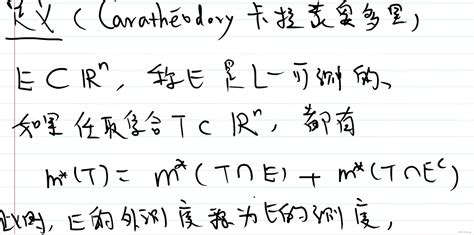 定义 (Carathéodory 卡拉泰奥多里)
E ⊂ ℝⁿ, 称E是L-可测的、
如果任取集合T ⊂ ℝⁿ, 都有
m*(T) = m*(T∩E) + m*(T∩Eᶜ)
此时, E的外测度称为E的测度,